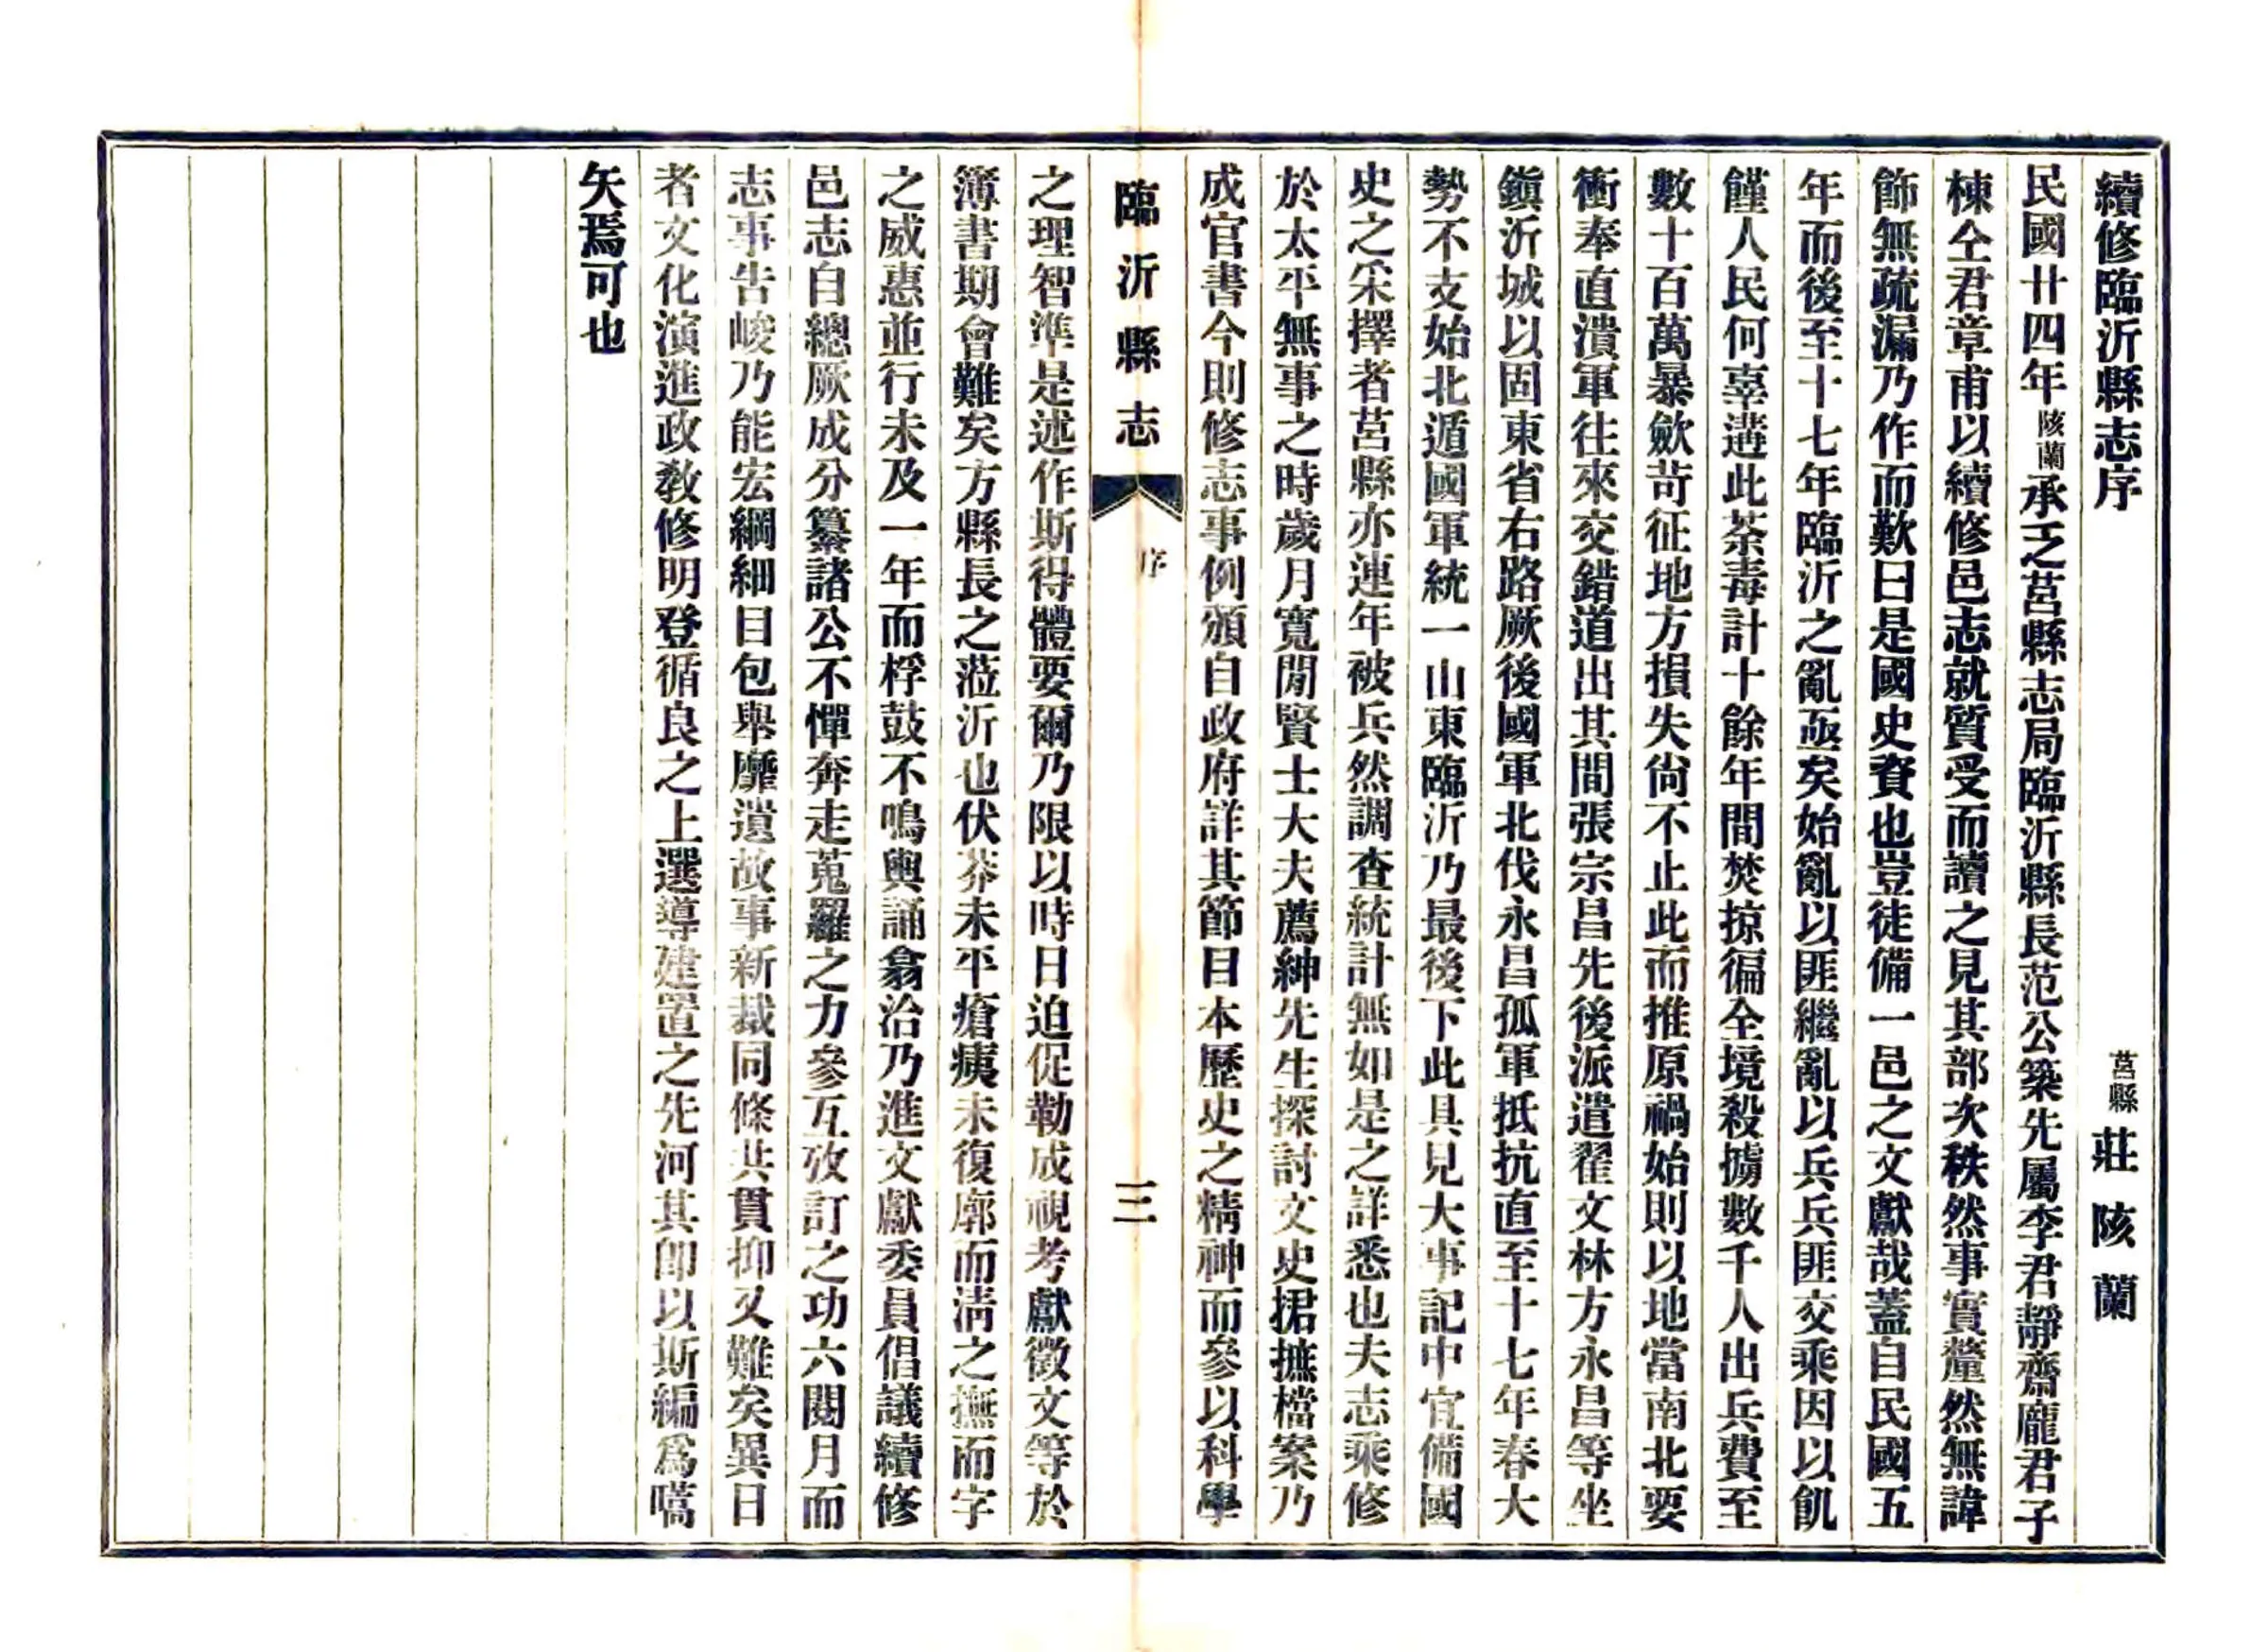 續修臨沂縣志序
莒縣 莊陔蘭
民國廿四年陔蘭承乏莒縣志局臨沂縣長范公築先屬李君靜齋龐君子
棟仝君章甫以續修邑志就質受而讀之見其部次秩然事實釐然無諱
飾無疏漏乃作而歎曰是國史資也豈徒備一邑之文獻哉蓋自民國五
年而後至十七年臨沂之亂亟矣始亂以匪繼亂以兵兵匪交乘因以飢
饉人民何辜遘此荼毒計十餘年間焚掠徧全境殺擄數千人出兵費至
數十百萬暴歛苛征地方損失尙不止此而推原禍始則以地當南北要
衝奉直潰軍往來交錯道出其間張宗昌先後派遣翟文林方永昌等坐
鎭沂城以固東省右路厥後國軍北伐永昌孤軍抵抗直至十七年春大
勢不支始北遁國軍統一山東臨沂乃最後下此具見大事記中宜備國
史之采擇者莒縣亦連年被兵然調查統計無如是之詳悉也夫志乘修
於太平無事之時歲月寬閒賢士大夫薦紳先生探討文史捃摭檔案乃
成官書今則修志事例頒自政府詳其節目本歷史之精神而參以科學
臨沂縣志
序
三
之理智準是述作斯得體要爾乃限以時日迫促勒成視考獻徵文等於
簿書期會難矣方縣長之蒞沂也伏莽未平瘡痍未復廓而淸之撫而字
之威惠並行未及一年而桴鼓不鳴輿誦翕洽乃進文獻委員倡議續修
邑志自總厥成分纂諸公不憚奔走蒐羅之力參互攷訂之功六閱月而
志事告峻乃能宏綱細目包舉靡遺故事新裁同條共貫抑又難矣異日
者文化演進政敎修明登循良之上選導建置之先河其卽以斯編爲嚆
矢焉可也